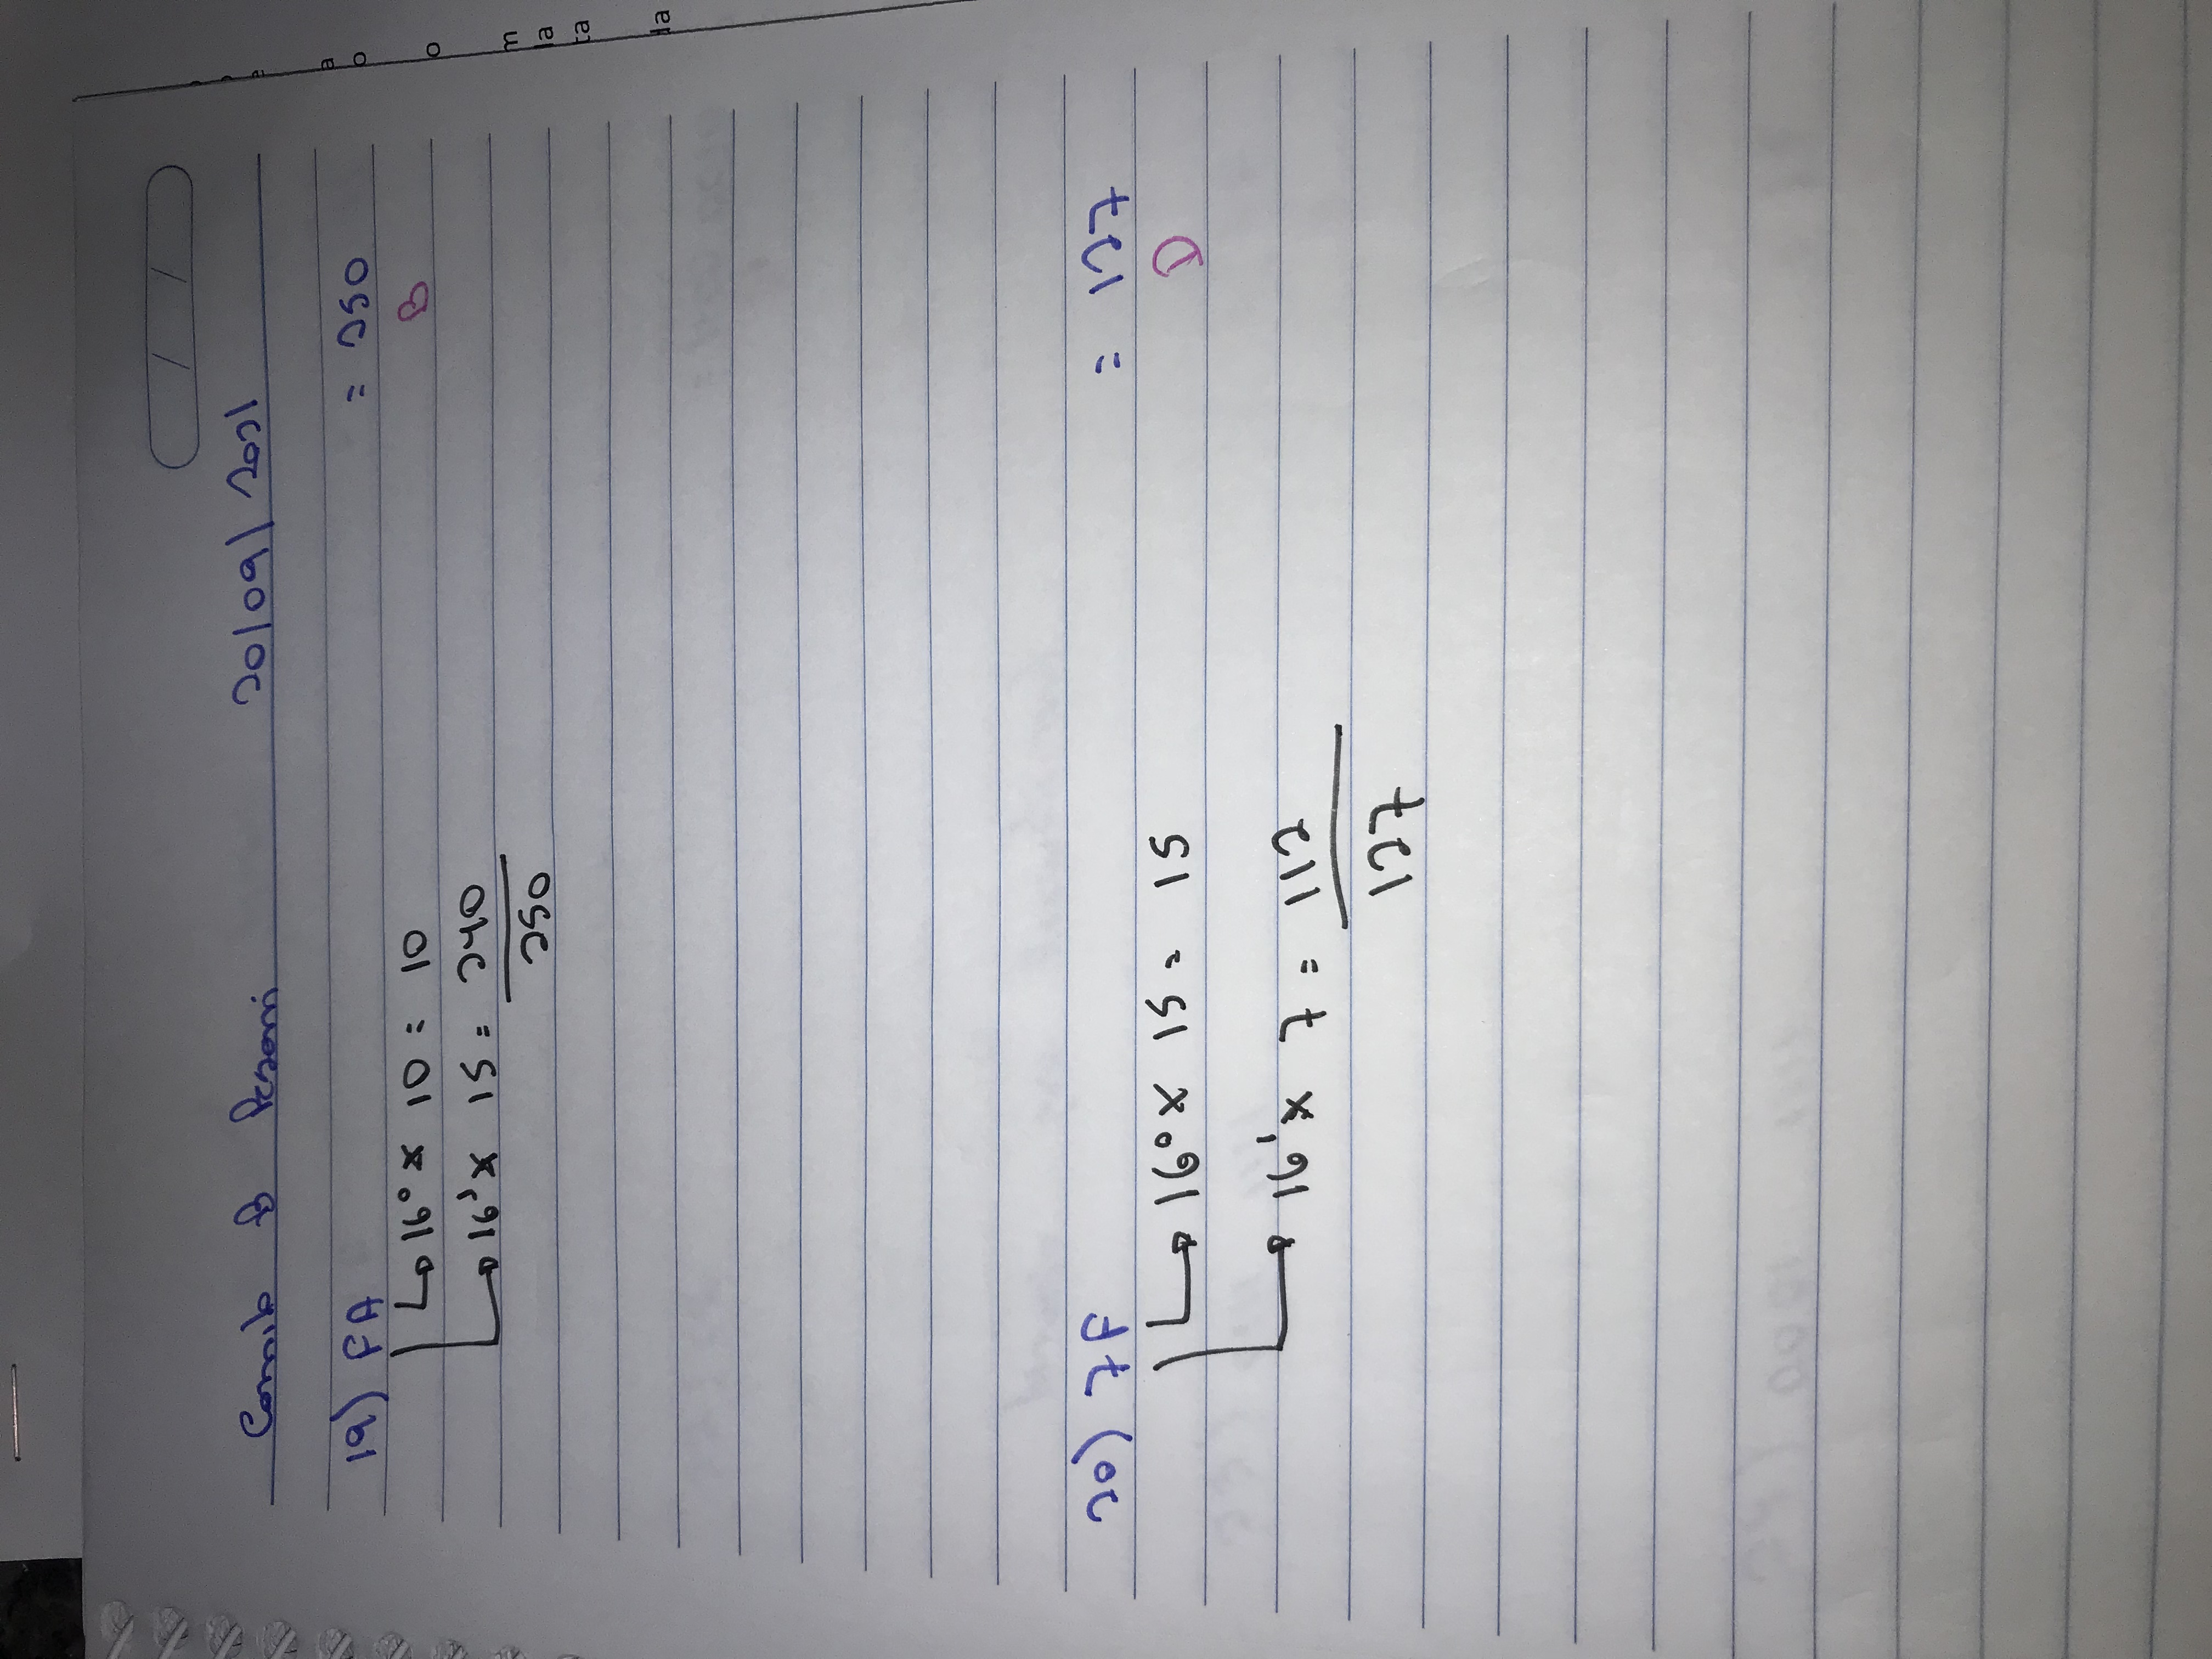 Camila B Pesani 20/09/2021
19) FA = 250
16⁰ x 10 = 10 B
16¹ x 15 = 240
250
20) 7F = 127
16⁰ x 15 = 15 D
16¹ x 7 = 112
127
a
o
o
m
la
ta
la